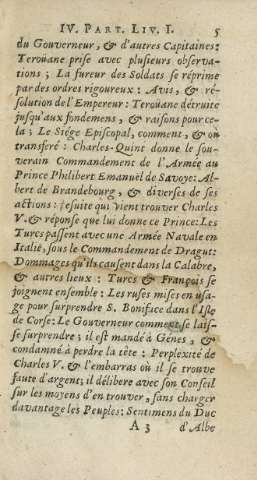 IV. PART. LIV. I. 5
du Gouverneur, & d'autres Capitaines:
Teroüane prise avec plusieurs observa-
tions ; La fureur des Soldats se réprime
par des ordres rigoureux : Avis, & ré-
solution de l'Empereur: Teroüane détruite
jusqu'aux fondemens, & raisons pour ce-
la ; Le Siége Episcopal, comment, & où
transferé : Charles-Quint donne le sou-
verain Commandement de l'Armée au
Prince Philibert Emanuël de Savoye: Al-
bert de Brandebourg, & diverses de ses
actions: Jesuite qui vient trouver Charles
V. & réponse que lui donne ce Prince: Les
Turcs passent avec une Armée Navale en
Italië, sous le Commandement de Dragut:
Dommages qu'ils causent dans la Calabre,
& autres lieux : Turcs & François se
joignent ensemble : Les ruses mises en usa-
ge pour surprendre S. Boniface dans l'Isle
de Corse: Le Gouverneur comment se lais-
se surprendre ; il est mandé à Gênes, &
condamné à perdre la tête : Perplexité de
Charles V. & l'embarras où il se trouve
faute d'argent; il délibere avec son Conseil
sur les moyens d'en trouver, sans charger
davantage les Peuples; Sentimens du Duc
A 3 d'Albe